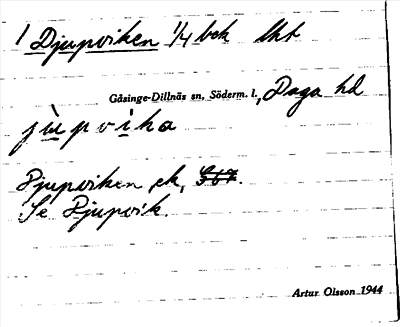 1 Djupviken 1/4 bek lht
Gåsinge-Dillnäs sn, Söderm. l., Daga hd
jùpvika
Djupviken ek,
Se Djupvik.
Artur Olsson 1944